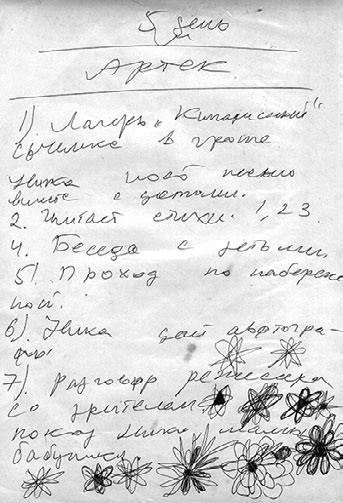 5 день
Артек
1) Лагерь "Кипарисный"
съемка в гроте
Ника поёт песню
вместе с детьми.
2. Читает стихи. 1, 2 3.
4. Беседа с детьми.
5) Проход по набереж
ной.
6) Ника дает автогра-
фы
7) разговор режиссера
со зрителем,
показ Ники мамы
бабушки